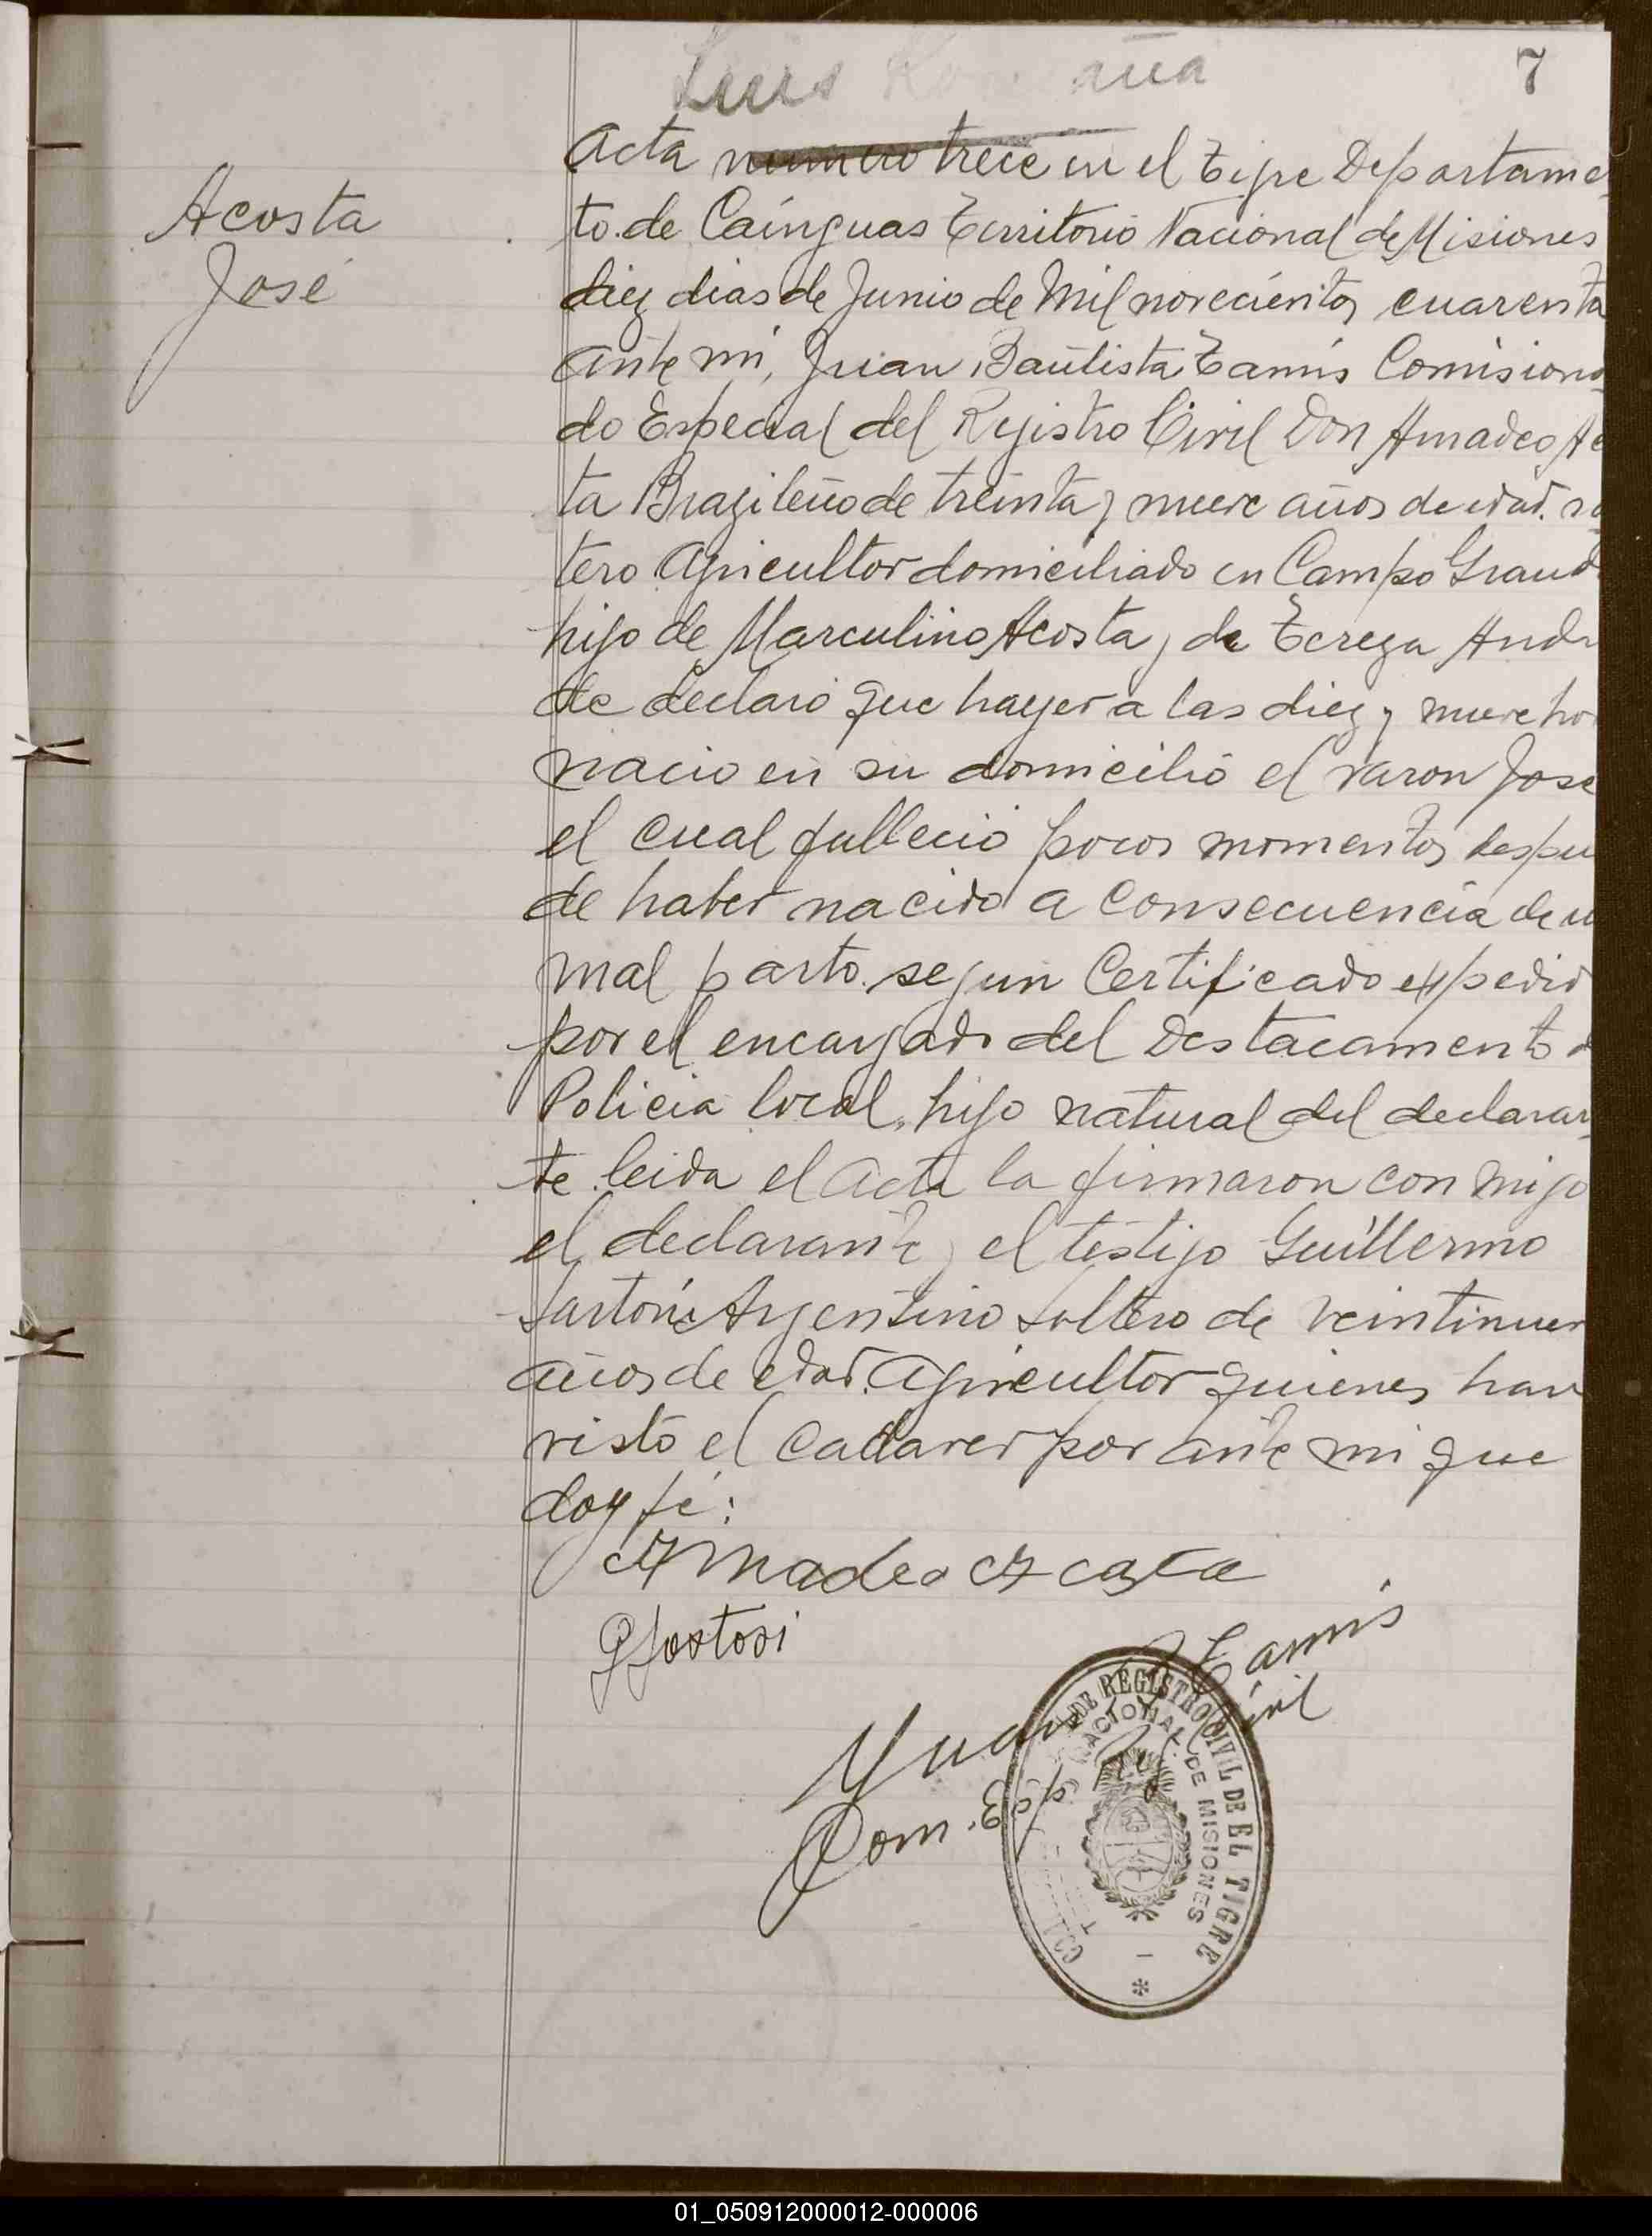 Luis
7
Acosta
José
Acta numero trece en el Tigre Departame
to de Caínguas Territorio Nacional de Misiones
diez dias de Junio de Mil novecientos cuarenta
ante mi, Juan Bautista Tamis Comisiona
do Especial del Registro Civil Don Amadeo Ac
ta Brazileño de treinta y nueve años de edad. so
tero Agricultor domiciliado en Campo Grand
hijo de Marculino Acosta y de Tereza Andr
de declaró que hayer a las diez y nueve ho
nacio en su domicilio el varon Jose
el cual fallecio pocos momentos despu
de haber nacido a consecuencia de u
mal parto segun Certificado expedid
por el encargado del Destacamento d
Policia local, hijo natural del declaran
te leida el Acta la firmaron con migo
el declarante y el testigo Guillermo
Sartori Argentino soltero de veintinuev
años de edad. Agricultor quienes han
visto el cadaver por ante mi que
doy fé:
Amadeo Acosta
G Sartori
Juan B Tamis
Com. Esp. Reg. Civil
DE REGISTRO CIVIL DE EL TIGRE
NACIONAL DE MISIONES
01_050912000012-000006